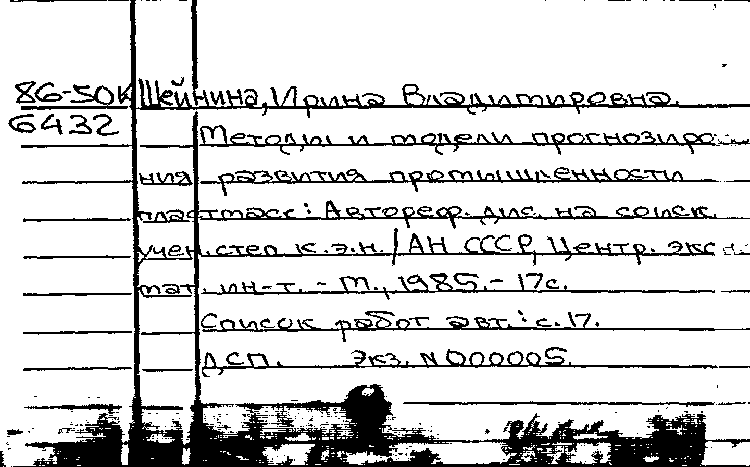 86-50К Шейнина, Ирина Владимировна.
6432
Методы и модели прогнозирова
ния развития промышленности
пластмасс: Автореф. дис. на соиск.
учен. степ к.э.н. / АН СССР, Центр. экон.
мат. ин-т. - М., 1985. - 17с.
Список работ авт.: с.17.
ДСП. Экз. N 000005.